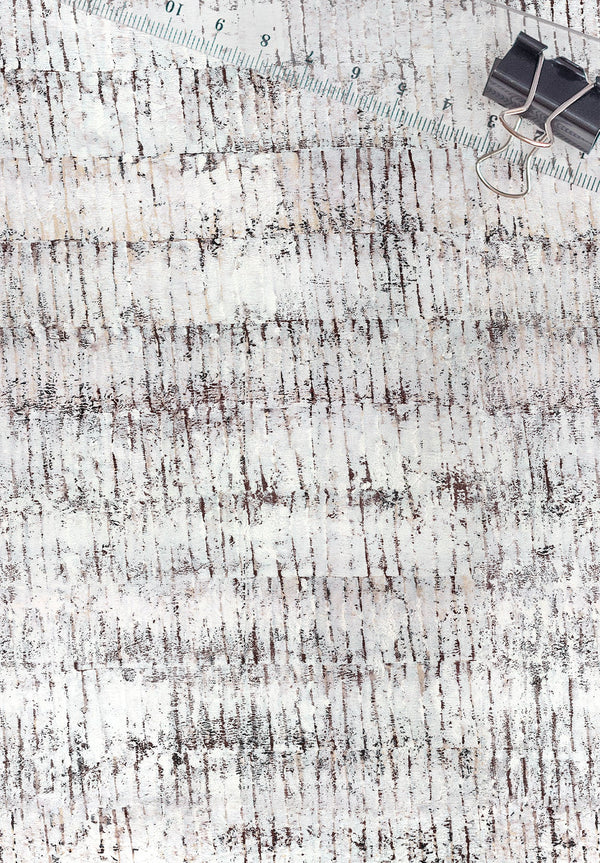 10 9 8 7 6 5 4 3